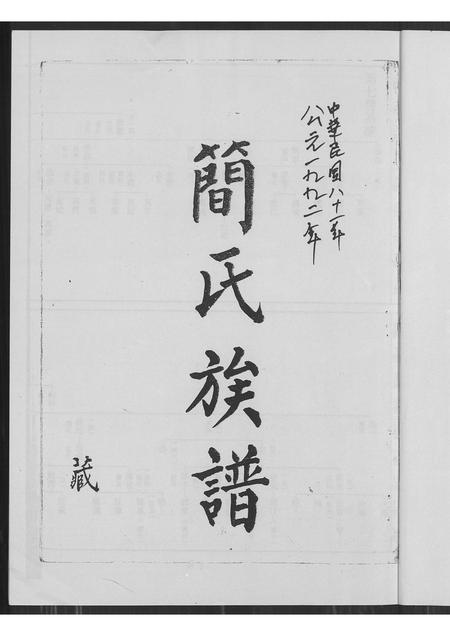 中華民國八十一年
公元一九九二年
簡氏族譜
藏